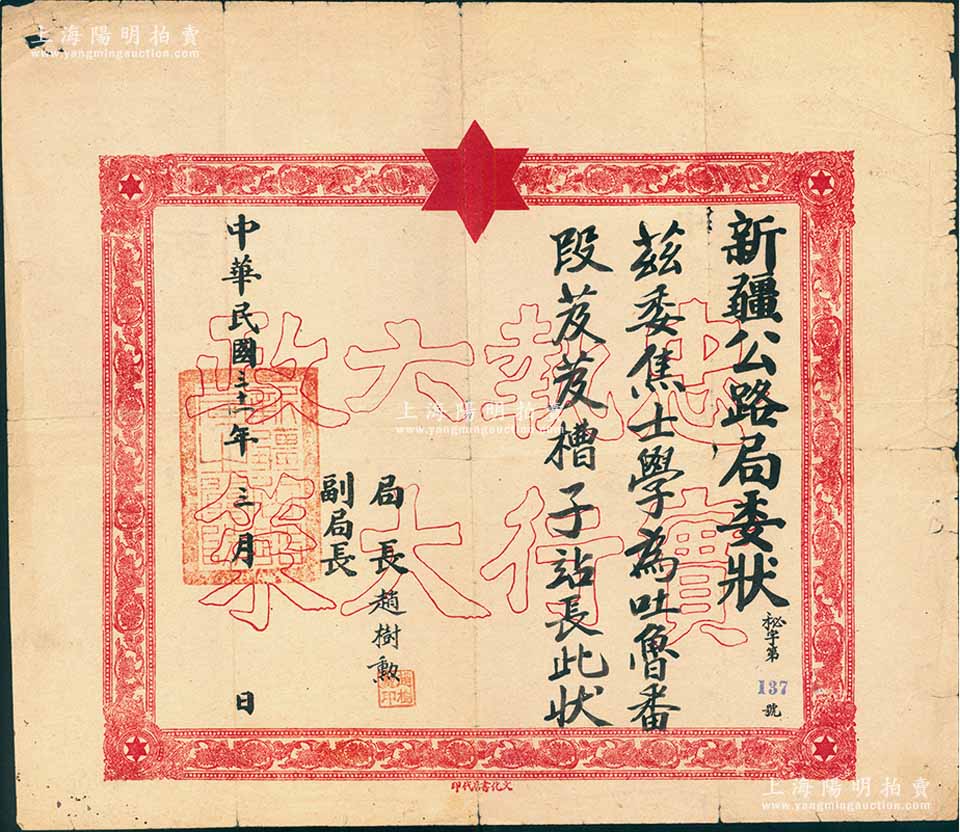 上海陽明拍賣
www.yangmingauction.com
新疆公路局委狀
秘字第
137
號
茲委焦士學為吐魯番
段芨芨槽子站長此狀
局長 趙樹勳
副局長
中華民國三十一年 三月 日
忠實執行六大政策
上海陽明拍賣
www.yangmingauction.com
文化書店代印
上海陽明拍賣
www.yangmingauction.com